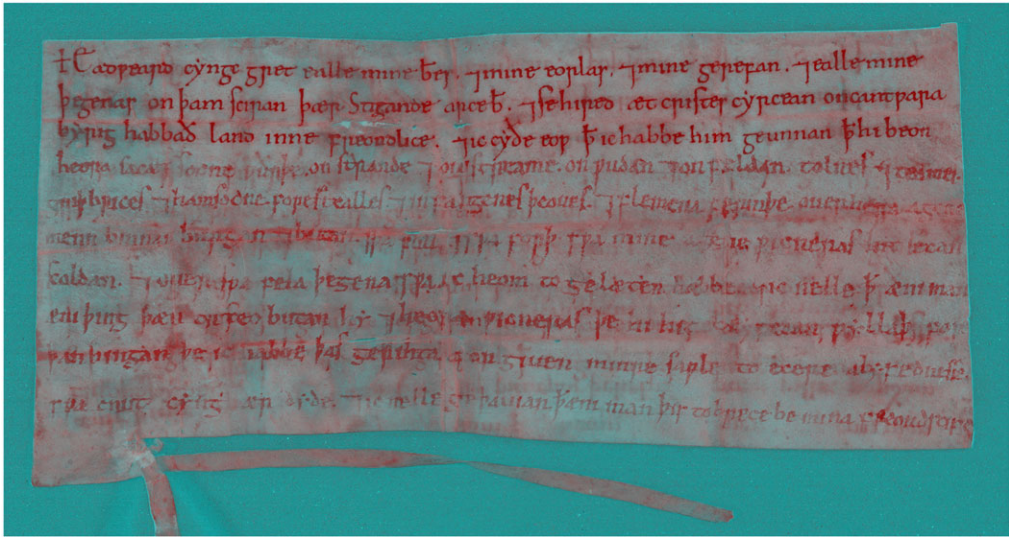 † Eadƿeard cynge gret ealle mine b̄es. ⁊ mine eorlas. ⁊ mine gerefan. ⁊ ealle mine
þegenas on þam sciran þær Stigande arceb̄. ⁊ se hired æt cristes cyrcean on cantƿara
byrig habbað land inne freondlice. ⁊ ic cyðe eoƿ ꝥ ic habbe him geunnan ꝥ hi beon
heora saca ⁊ socne ƿurþe. on strande ⁊ on streame. on ƿudan ⁊ on feldan. tolnes ⁊ teames.
griþbrices ⁊ hamsocne. forestealles ⁊ infangenes þeoues. ⁊ flemena fyrmþe. ofer heora agene
menn binnan burgan ⁊ butan. sƿa full ⁊ sƿa forþ sƿa mine ƿicneras hit secan
scoldan. ⁊ ofer sƿa fela þegena sƿa ic heom to gelæten hæbbe ic nelle ꝥ æni man
æni þing þær on teo butan hy ⁊ heora ƿicneras þe hi hit ƿyllaþ. for
þam þingan þe ic habbe þas gerihta giuen minre saƿle to ecere alysednesse.
sƿa cnut cyng ær dyde. ⁊ ic nelle geþauian æni man þis tobrece be minan freondscipe